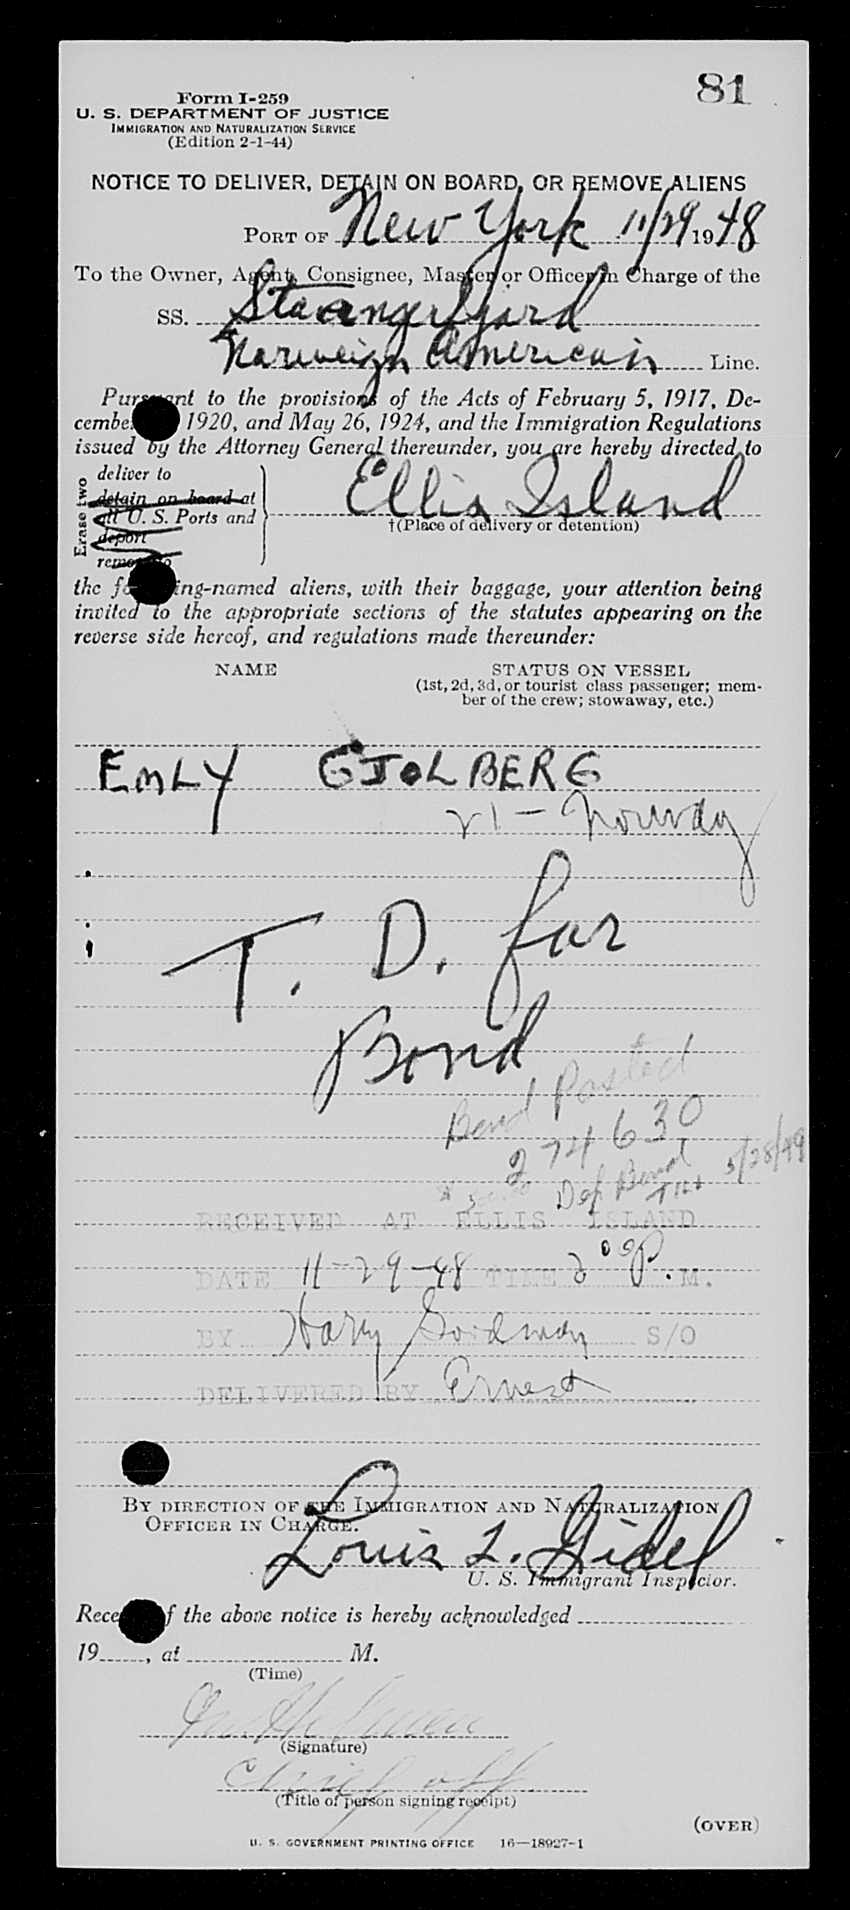 81
Form I-259
U. S. DEPARTMENT OF JUSTICE
IMMIGRATION AND NATURALIZATION SERVICE
(Edition 2-1-44)
NOTICE TO DELIVER, DETAIN ON BOARD, OR REMOVE ALIENS
PORT OF New York 11/29 1948
To the Owner, Agent, Consignee, Master or Officer in Charge of the
SS. Stavangerfjord
Norweign American Line.
Pursuant to the provisions of the Acts of February 5, 1917, De-
cember 1920, and May 26, 1924, and the Immigration Regulations
issued by the Attorney General thereunder, you are hereby directed to
Erase two
deliver to
detain on board at
all U. S. Ports and
deport
remove to
Ellis Island
†(Place of delivery or detention)
the following-named aliens, with their baggage, your attention being
invited to the appropriate sections of the statutes appearing on the
reverse side hereof, and regulations made thereunder:
NAME STATUS ON VESSEL
(1st, 2d, 3d, or tourist class passenger; mem-
ber of the crew; stowaway, etc.)
EMLY GJOLBERG
21 - Norway
T. D. for
Bond
Bond Posted
274630
Def Bond 5/28/49
RECEIVED AT ELLIS ISLAND
DATE 11-29-48 TIME 2 00 P. M.
BY Harry Goodman S/O
DELIVERED BY Ernest
BY DIRECTION OF THE IMMIGRATION AND NATURALIZATION
OFFICER IN CHARGE.
Louis L. Gidel
U. S. Immigrant Inspector.
Receipt of the above notice is hereby acknowledged
19 , at M.
(Time)
(Signature)
Chief off
(Title of person signing receipt)
(OVER)
U. S. GOVERNMENT PRINTING OFFICE 16—18927-1